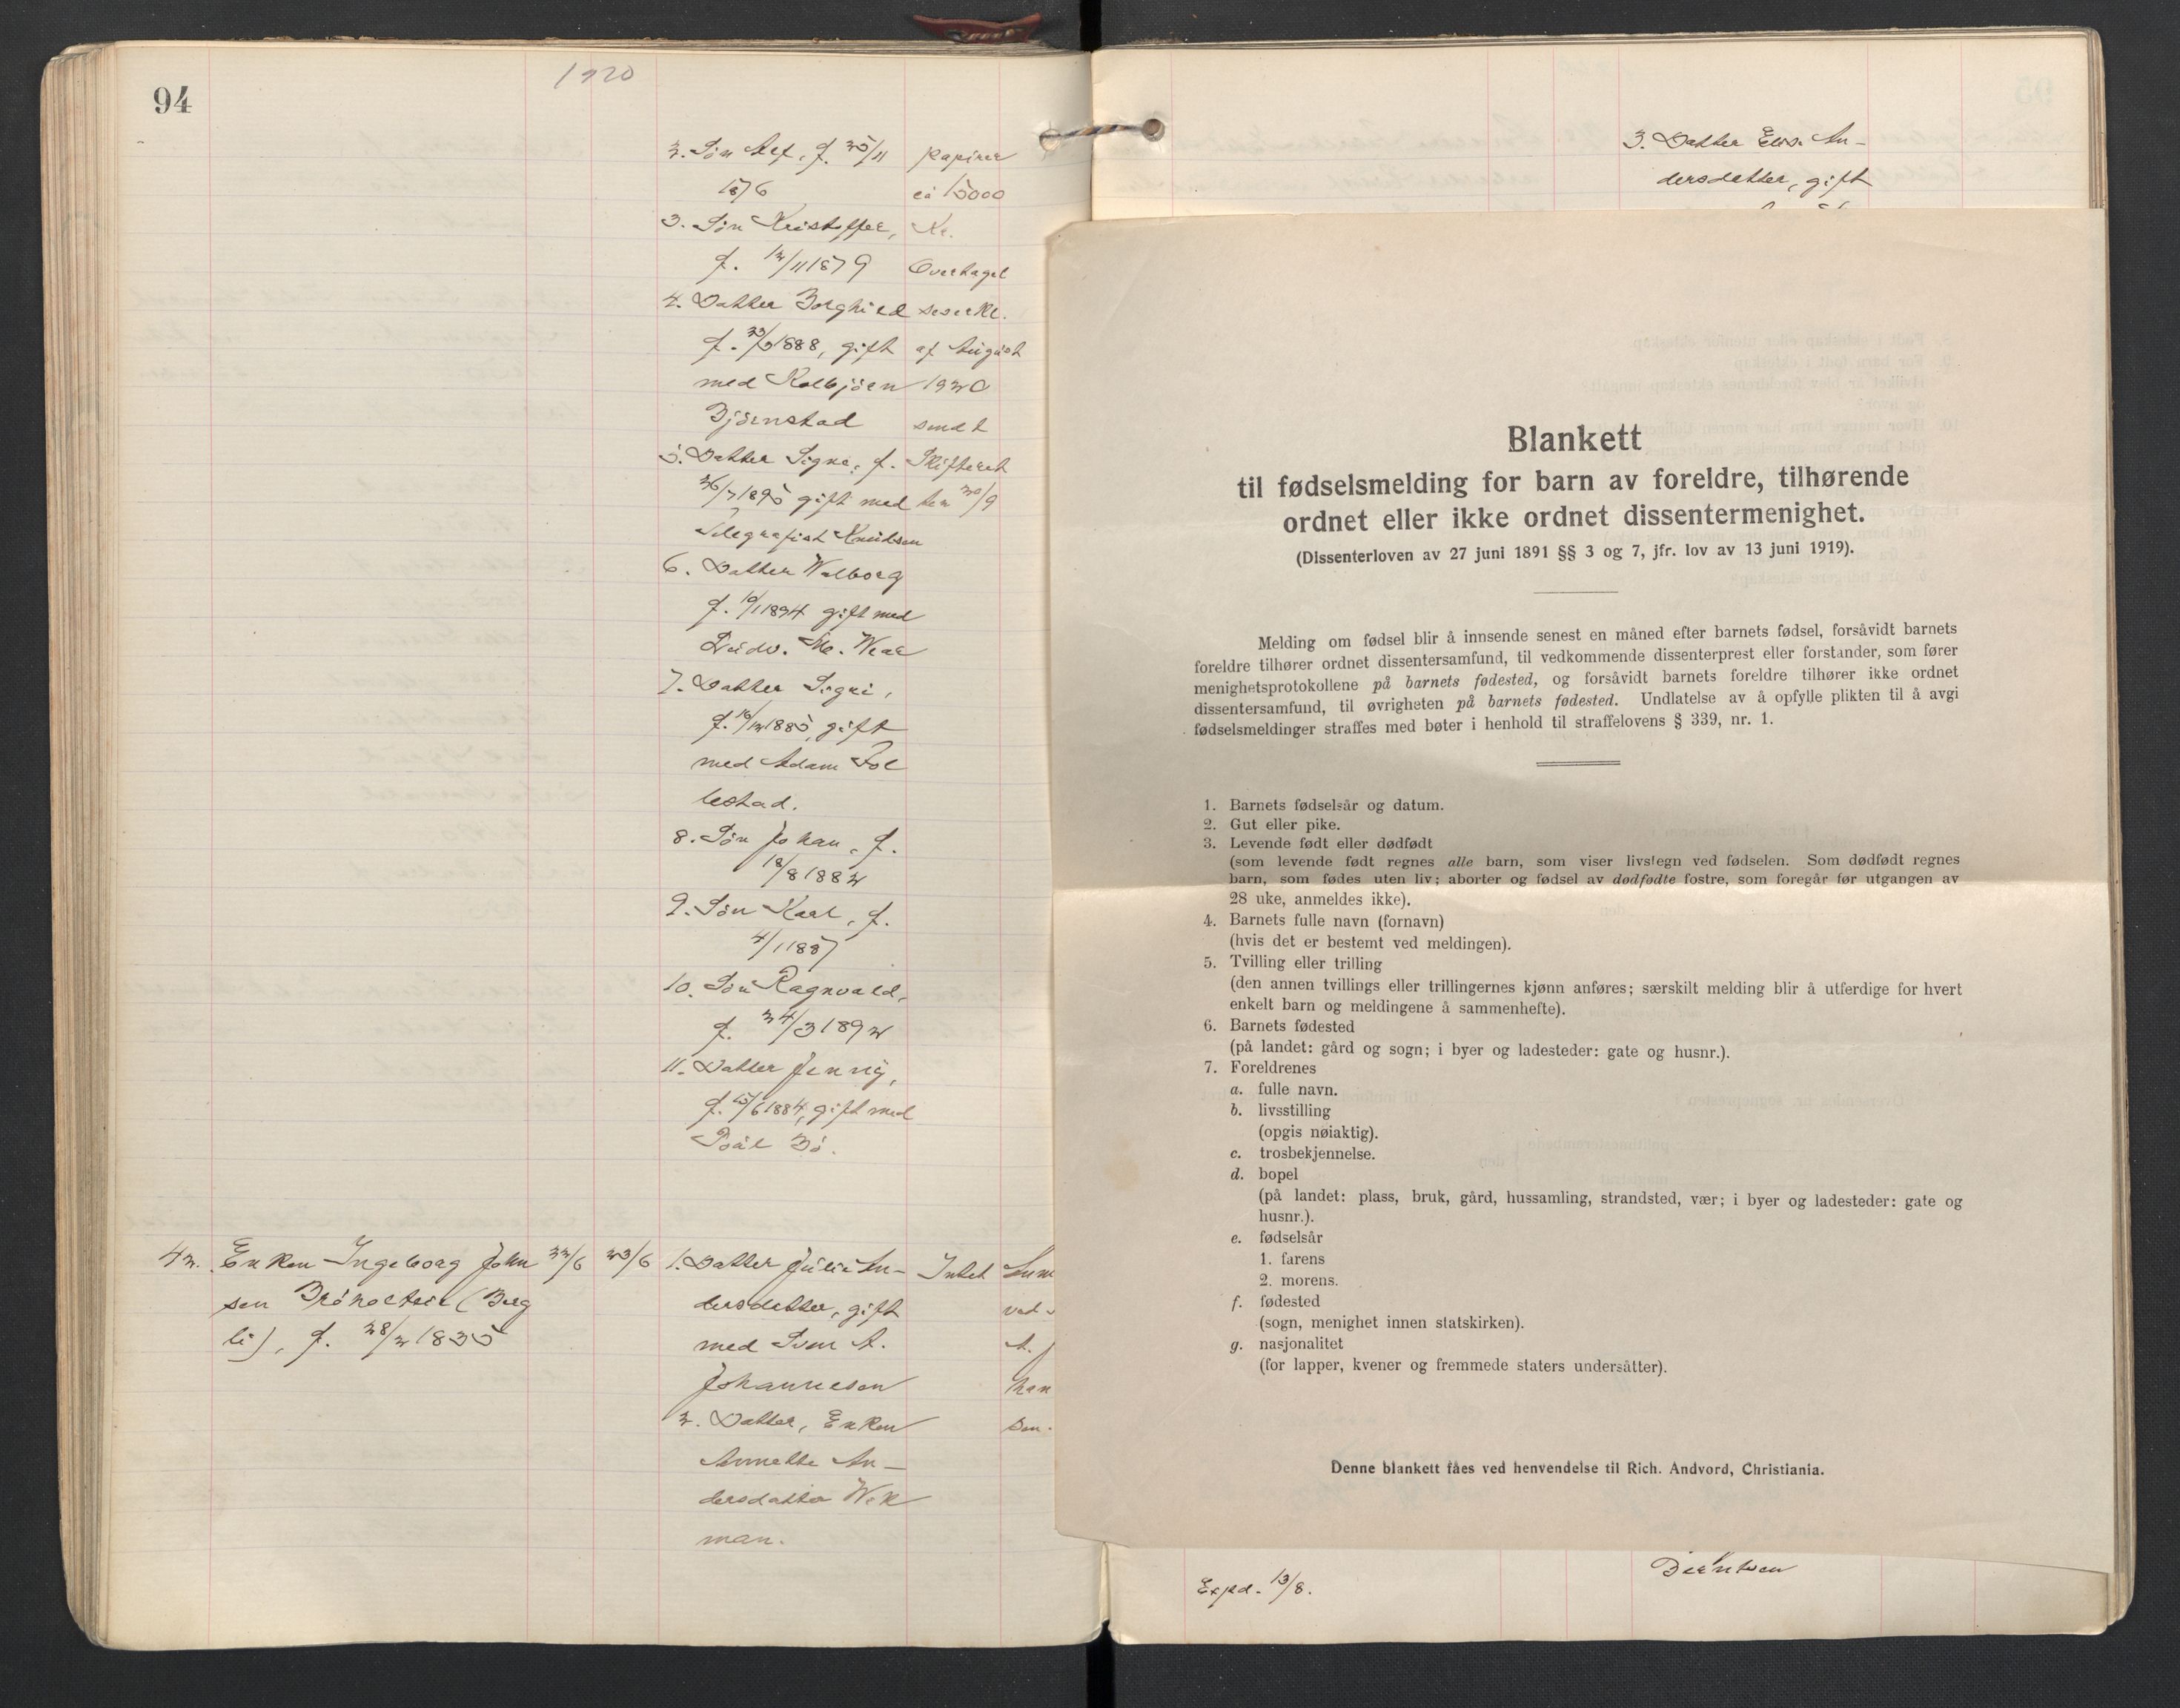 94
1920
2. Søn Alf, f. 25/11
1876
3. Søn Kristoffer,
f. 12/11 1879
4. Datter Borghild
f. 1888, gift
med Kolbjørn
Bjørnstad
5. Datter Signe, f.
26/7 1895 gift med
Telegrafist Knudsen
6. Datter Walborg
f. 10/1 1894 gift med
7. Datter Sigri,
f. 16/12 1885, gift
med Adam Fol
lestad.
8. Søn Johan, f.
18/8 1882
9. Søn Karl, f.
4/1 1887
10. Søn Ragnvald,
f. 24/3 1892
11. Datter Jenny,
f. 15/6 1884, gift med
Pål Bø.
papirer
ca 15000
Kr.
Overtaget
af August
1920
sendt
Skifteret
ten 20/9
42. Enken Ingeborg John
sen (Berg
li), f. 28/2 1835
22/6
23/6
1. Datter Julie An-
dersdatter, gift
med Sven A.
Johannesen
2. Datter, Enken
Annette An-
dersdatter Wek
man.
Intet
A.
han
sen.
3. Datter Elis. An-
dersdatter, gift
Blankett
til fødselsmelding for barn av foreldre, tilhørende
ordnet eller ikke ordnet dissentermenighet.
(Dissenterloven av 27 juni 1891 §§ 3 og 7, jfr. lov av 13 juni 1919).
Melding om fødsel blir å innsende senest en måned efter barnets fødsel, forsåvidt barnets
foreldre tilhører ordnet dissentersamfund, til vedkommende dissenterprest eller forstander, som fører
menighetsprotokollene på barnets fødested, og forsåvidt barnets foreldre tilhører ikke ordnet
dissentersamfund, til øvrigheten på barnets fødested. Undlatelse av å opfylle plikten til å avgi
fødselsmeldinger straffes med bøter i henhold til straffelovens § 339, nr. 1.
1. Barnets fødselsår og datum.
2. Gut eller pike.
3. Levende født eller dødfødt
(som levende født regnes alle barn, som viser livstegn ved fødselen. Som dødfødt regnes
barn, som fødes uten liv; aborter og fødsel av dødfødte fostre, som foregår før utgangen av
28 uke, anmeldes ikke).
4. Barnets fulle navn (fornavn)
(hvis det er bestemt ved meldingen).
5. Tvilling eller trilling
(den annen tvillings eller trillingernes kjønn anføres; særskilt melding blir å utferdige for hvert
enkelt barn og meldingene å sammenhefte).
6. Barnets fødested
(på landet: gård og sogn; i byer og ladesteder: gate og husnr.).
7. Foreldrenes
a. fulle navn.
b. livsstilling
(opgis nøiaktig).
c. trosbekjennelse.
d. bopel
(på landet: plass, bruk, gård, hussamling, strandsted, vær; i byer og ladesteder: gate og
husnr.).
e. fødselsår
1. farens
2. morens.
f. fødested
(sogn, menighet innen statskirken).
g. nasjonalitet
(for lapper, kvener og fremmede staters undersåtter).
Denne blankett fåes ved henvendelse til Rich. Andvord, Christiania.
Berntsen
Exped. 13/8.